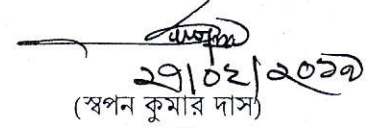 ২৭/০২/২০১৯
(স্বপন কুমার দাস)